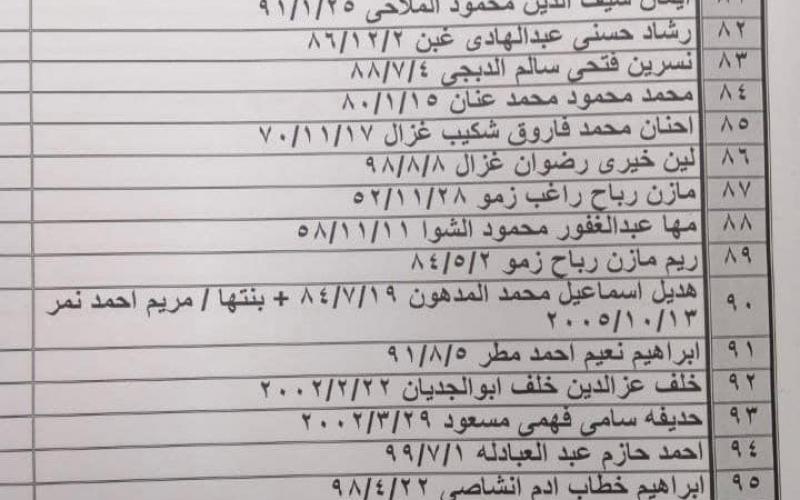 ٨١ ايمان سيف الدين محمود الملاحى ٩١/١/٢٥
٨٢ رشاد حسنى عبدالهادى غبن ٨٦/١٢/٢
٨٣ نسرين فتحى سالم الدبجى ٨٨/٧/٤
٨٤ محمد محمود محمد عنان ٨٠/١/١٥
٨٥ احنان محمد فاروق شكيب غزال ٧٠/١١/١٧
٨٦ لين خيرى رضوان غزال ٩٨/٨/٨
٨٧ مازن رباح راغب زمو ٥٢/١١/٢٨
٨٨ مها عبدالغفور محمود الشوا ٥٨/١١/١١
٨٩ ريم مازن رباح زمو ٨٤/٥/٢
٩٠ هديل اسماعيل محمد المدهون ٨٤/٧/١٩ + بنتها / مريم احمد نمر
٢٠٠٥/١٠/١٣
٩١ ابراهيم نعيم احمد مطر ٩١/٨/٥
٩٢ خلف عزالدين خلف ابوالجديان ٢٠٠٢/٢/٢٢
٩٣ حديفه سامى فهمى مسعود ٢٠٠٢/٣/٢٩
٩٤ احمد حازم عبد العبادله ٩٩/٧/١
٩٥ ابراهيم خطاب ادم انشاصى ٩٨/٤/٢٢